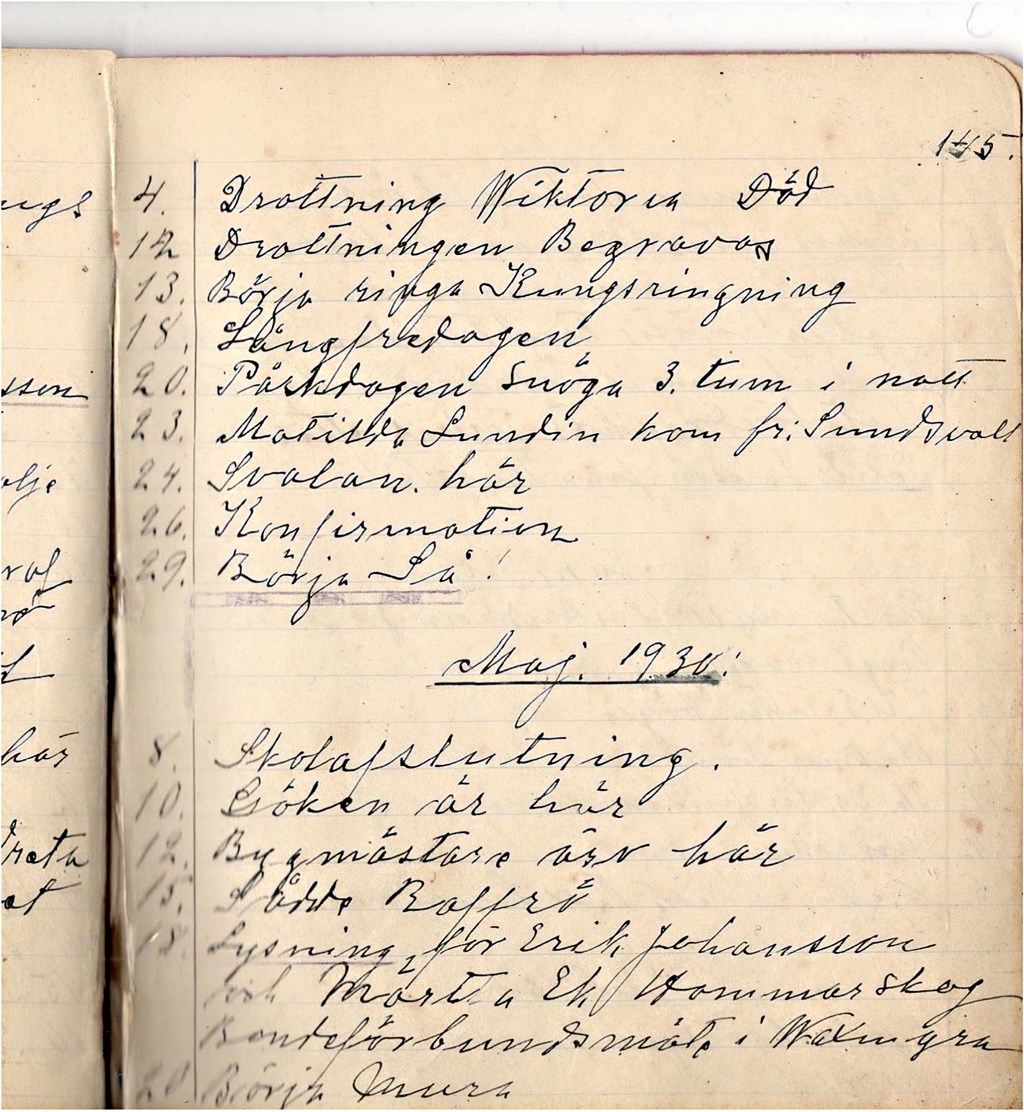 145.
4. Drottning Wiktoria Död
ngs
12 Drottningen Begravas
13. Börja ringa Kungsringning
18. Långfredagen
20. Påskdagen Snöga 3. tum i natt
sson
23. Matilda Lundin kom fr: Sundsvall
24. Svalan. här
olje
26. Konfirmation
29. Börja Så!
Maj. 1930!
8. Skolafslutning.
här
10. Göken är här
12. Bygmästare äro här
15. Sådde Raffrö
18. Lysning, för Erik Johansson
och Märtta Ek Hammarskog
Bondeförbundsmöte i Waxmyra
20 Börja Mura